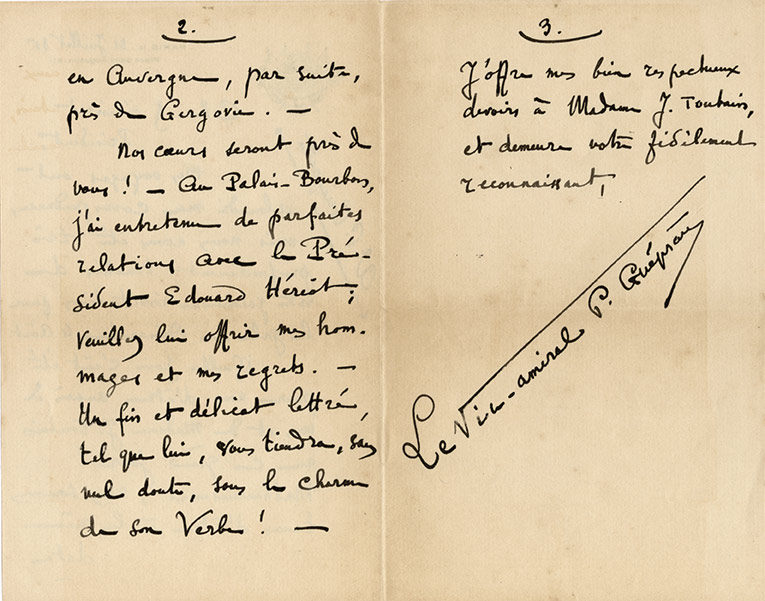 2.
en Auvergne, par suite,
près de Gergovie. —
Nos cœurs seront près de
vous ! — Au Palais-Bourbon,
j'ai entretenu de parfaites
relations avec le Pré-
sident Edouard Hériot ;
veuillez lui offrir mes hom-
mages et mes regrets. —
Un fin et délicat lettré,
tel que lui, vous tiendra, sans
nul doute, sous le charme
de son Verbe ! —
3.
J'offre mes bien respectueux
devoirs à Madame J. Toutain,
et demeure votre fidèlement
reconnaissant,
Le Vice-amiral P. Guépratte